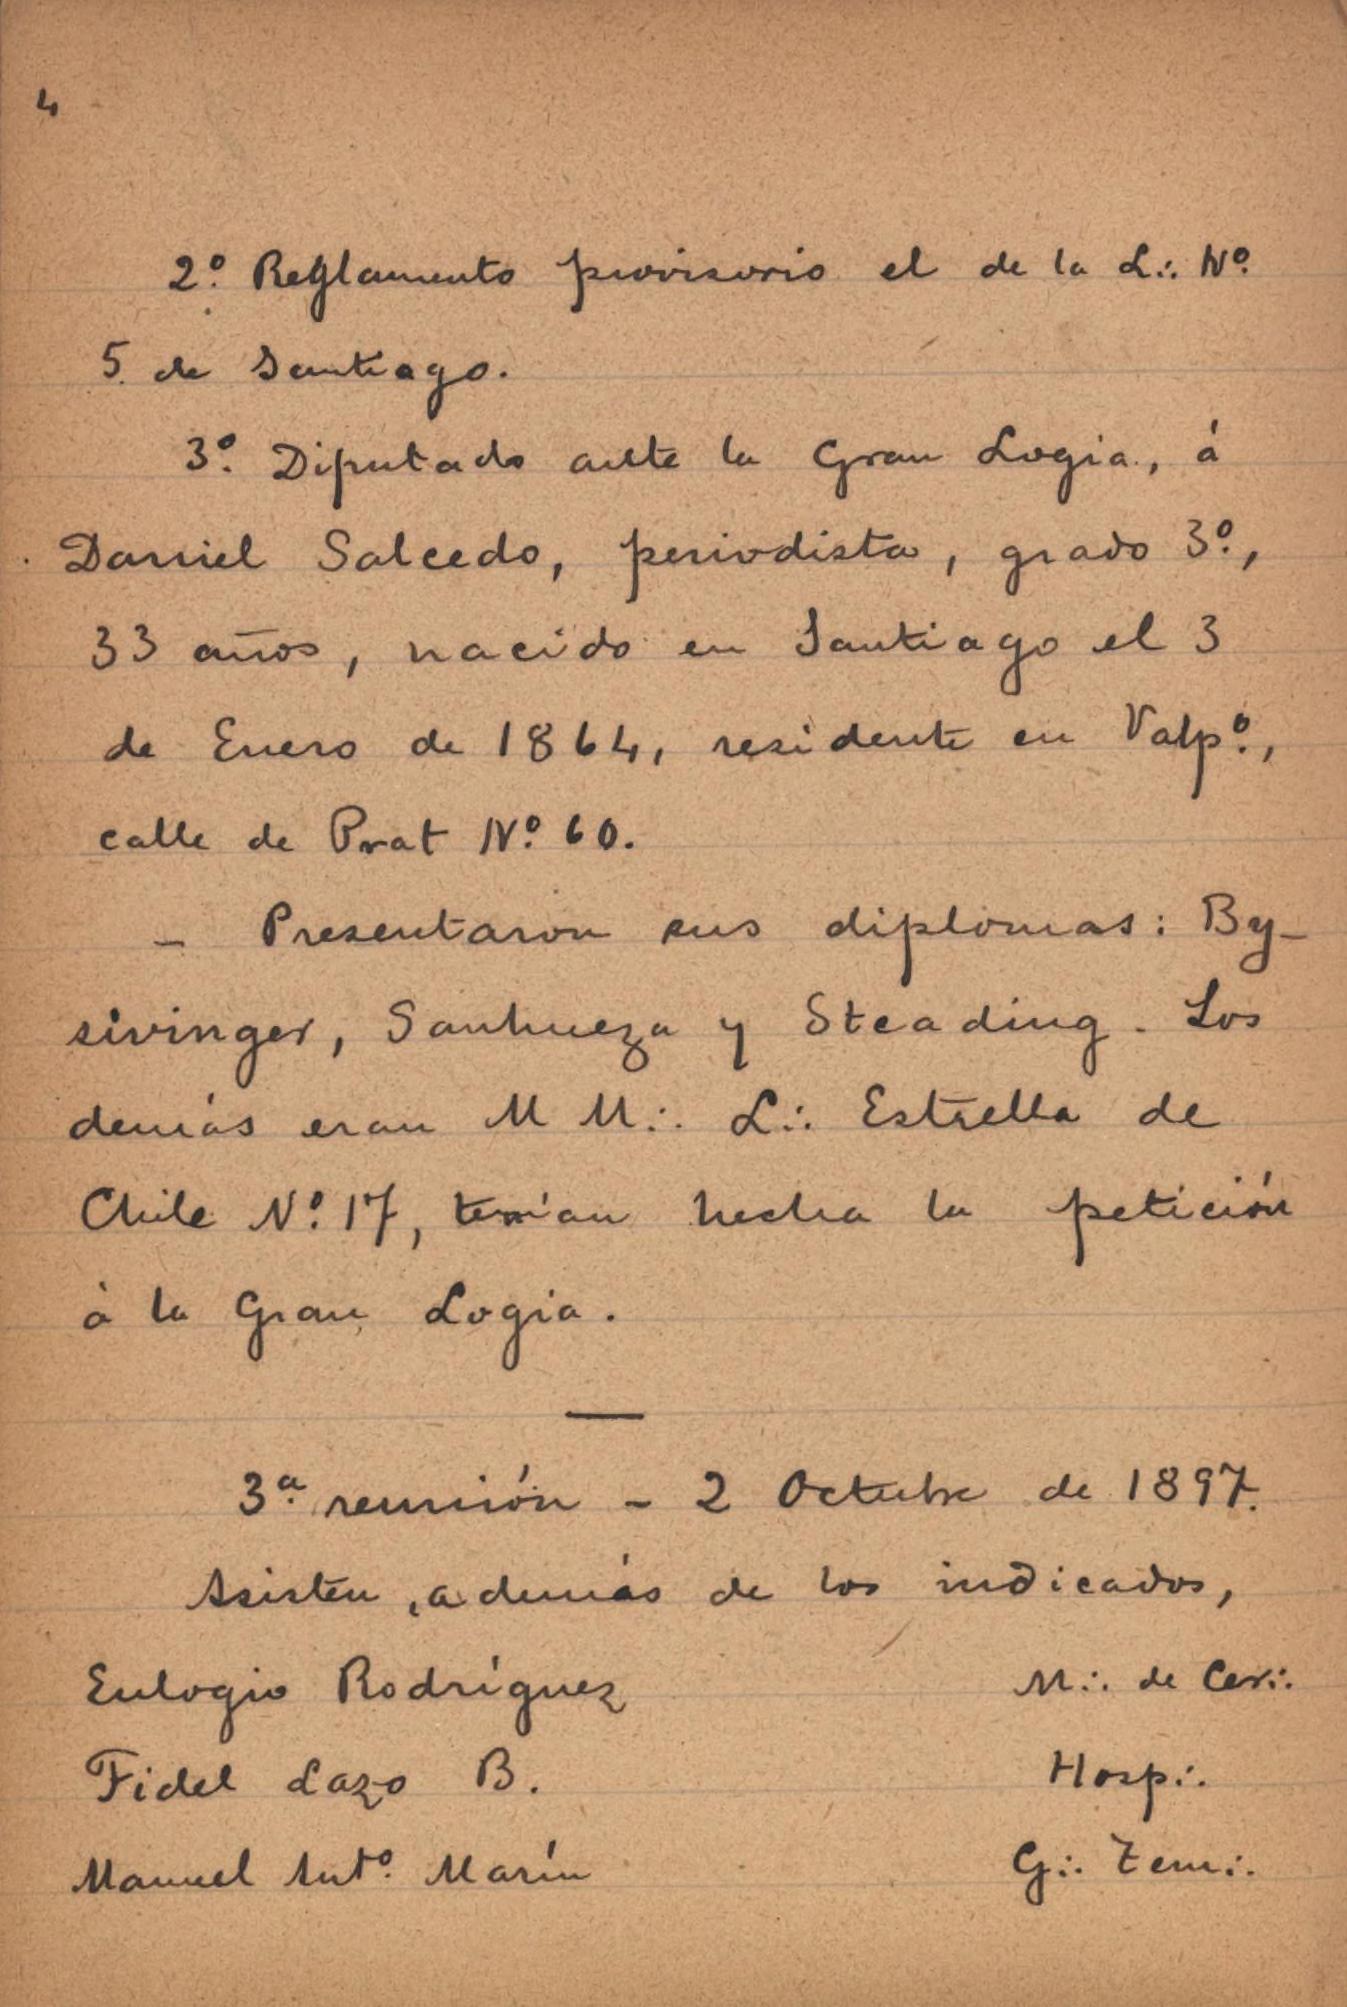 4
2º. Reglamento provisorio el de la L∴ Nº.
5. de Santiago.
3º. Diputado ante la Gran Logia, á
Daniel Salcedo, periodista, grado 3º.,
33 años, nacido en Santiago el 3
de Enero de 1864, residente en Valpº.,
calle de Prat Nº. 60.
– Presentaron sus diplomas: By-
sivinger, Sanhueza y Steading. Los
demás eran M M∴ L∴ Estrella de
Chile Nº. 17, tenían hecha la petición
á la Gran Logia.
—
3ª. reunión – 2 Octubre de 1897.
Asisten, además de los indicados,
Eulogio Rodríguez M∴ de Cer∴
Fidel Lazo B. Hosp∴
Manuel Antº. Marín G∴ Tem∴